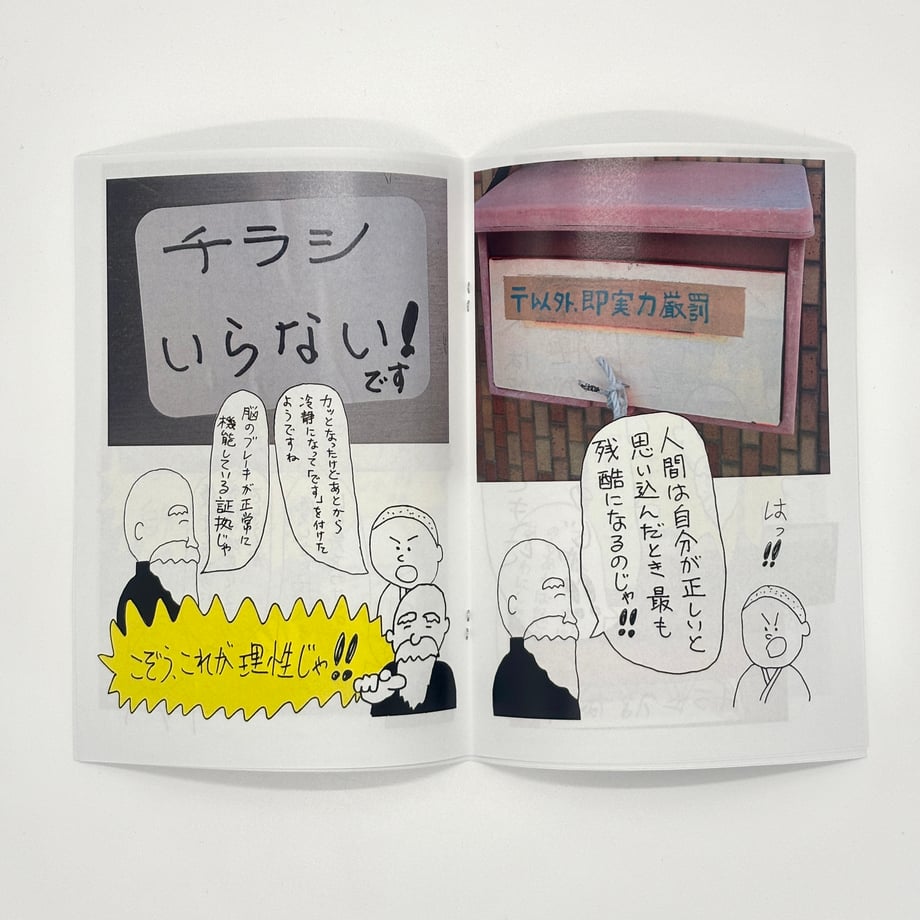 チラシ
いらない!
です
カッとなったけどあとから
冷静になって「です」を付けた
ようですね
脳のブレーキが正常に
機能している証拠じゃ
こぞう、これが理性じゃ!!
テ以外、即実力厳罰
人間は自分が正しいと
思い込んだとき最も
残酷になるのじゃ!!
はっ!!